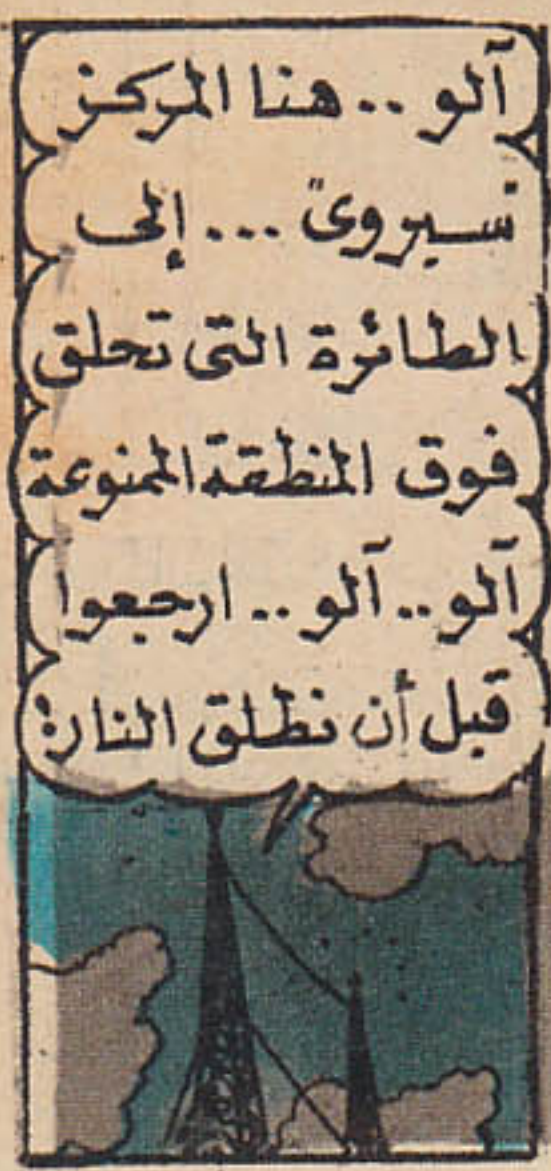 آلو .. هنا المركز
"سيروى" ... إلى
الطائرة التى تحلق
فوق المنطقة الممنوعة
آلو .. آلو .. ارجعوا
قبل أن نطلق النار!